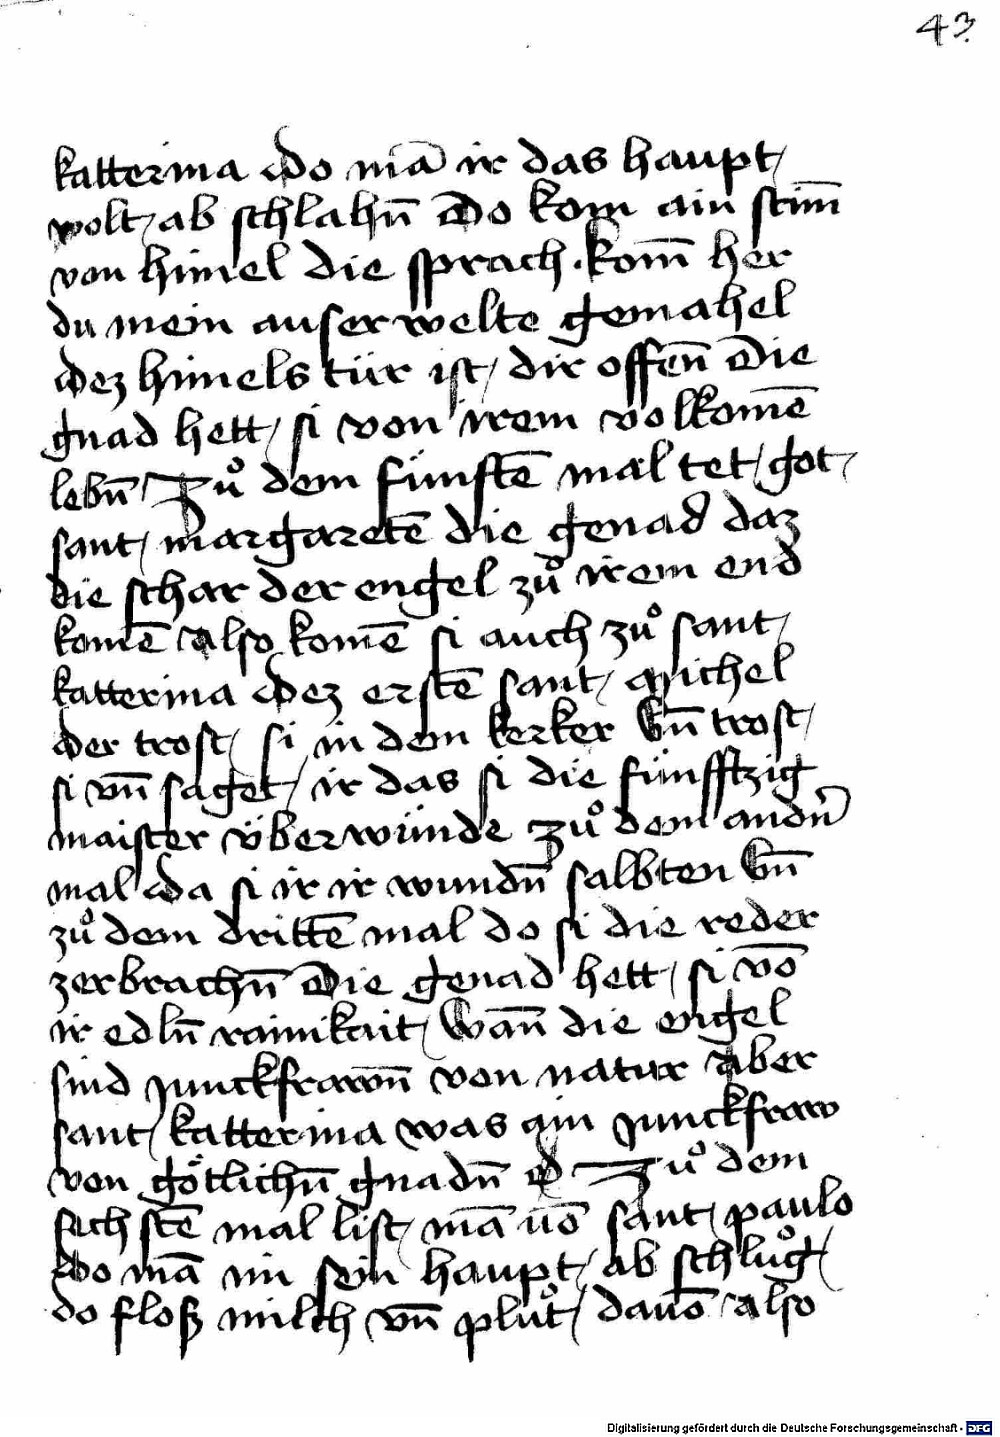 43
katterina Do mā ir das haupt
wolt ab schlahn̄ Do kom ain stim̄
von himel die sprach · kom̄ her
du mein auserwelte gemahel
Dez himels tür ist dir offen̄ Die
gnad hett si von irem volkomē
lebn̄ Zuͦ dem fünftē mal tet got
sant margaretē die genad daz
die schar der engel zuͦ irem end
komē Also komē si auch zuͦ sant
katterina Dez erstē sant Michel
der trost si in dem kerker vn̄ trost
si vn̄ saget ir das si die fünfftzig
maister überwünde Zuͦ dem andn̄
mal Da si ir ir wundn̄ salbten vn̄
zuͦ dem drittē mal do si die reder
zerbrachn̄ Die genad hett si vō
ir edln̄ rainikait Wan̄ die engel
sind junckfrawn̄ von natur Aber
sant katterina was ain junckfraw
von götlichn̄ gnadn̄ Zuͦ dem
sechstē mal list mā vō sant paulo
Do mā im sein haupt ab schluͦg
do floß milch vn̄ pluͦt davō Also
Digitalisierung gefördert durch die Deutsche Forschungsgemeinschaft - DFG